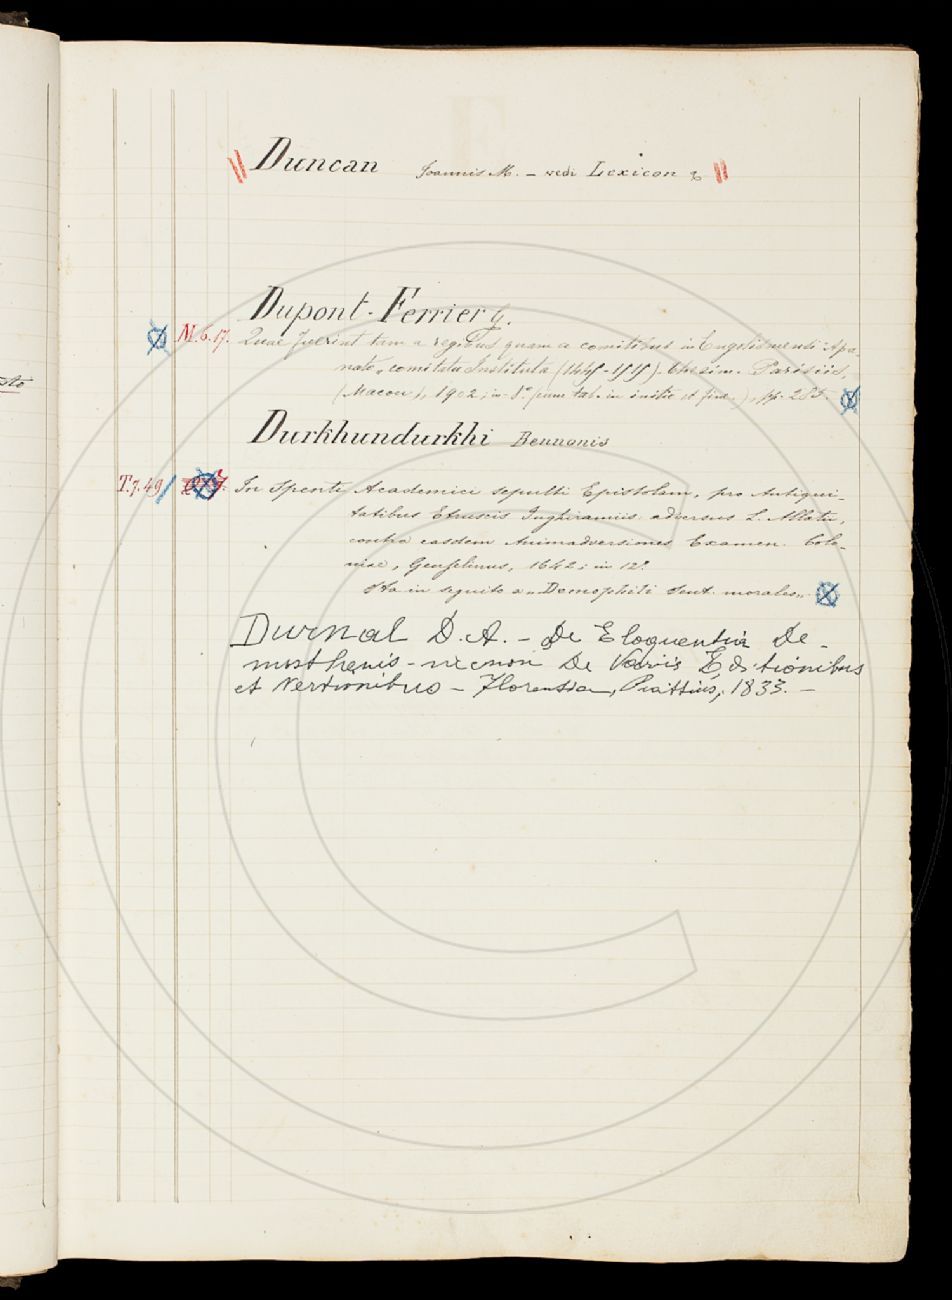 Duncan Joannis M. – vedi Lexicon &
Dupont-Ferrier G.
M.6.17. Quae fuerint tum a regibus quam a comitibus in Engolismensi Apa-
nato comitatu Instituta (1445-1515). Thesim. Parisiis,
(Macon), 1902; in 8º (cum tab. in initio et fine.), pp. 285.
Durkhundurkhi Bennonis
T.7.49/ In Spenti Academici sepulti Epistolam, pro Antiqui-
tatibus Etruscis Inghiramiis adversus L. Allatii,
contra easdem Animadversiones Examen. Colo-
niae, 1642; in 12º
Sta in seguito a „Demophili Sent. morales„
Durnal D. A. – De Eloquentia De-
mosthenis – necnon De Variis Editionibus
et Vertionibus – Florentia, 1833. –